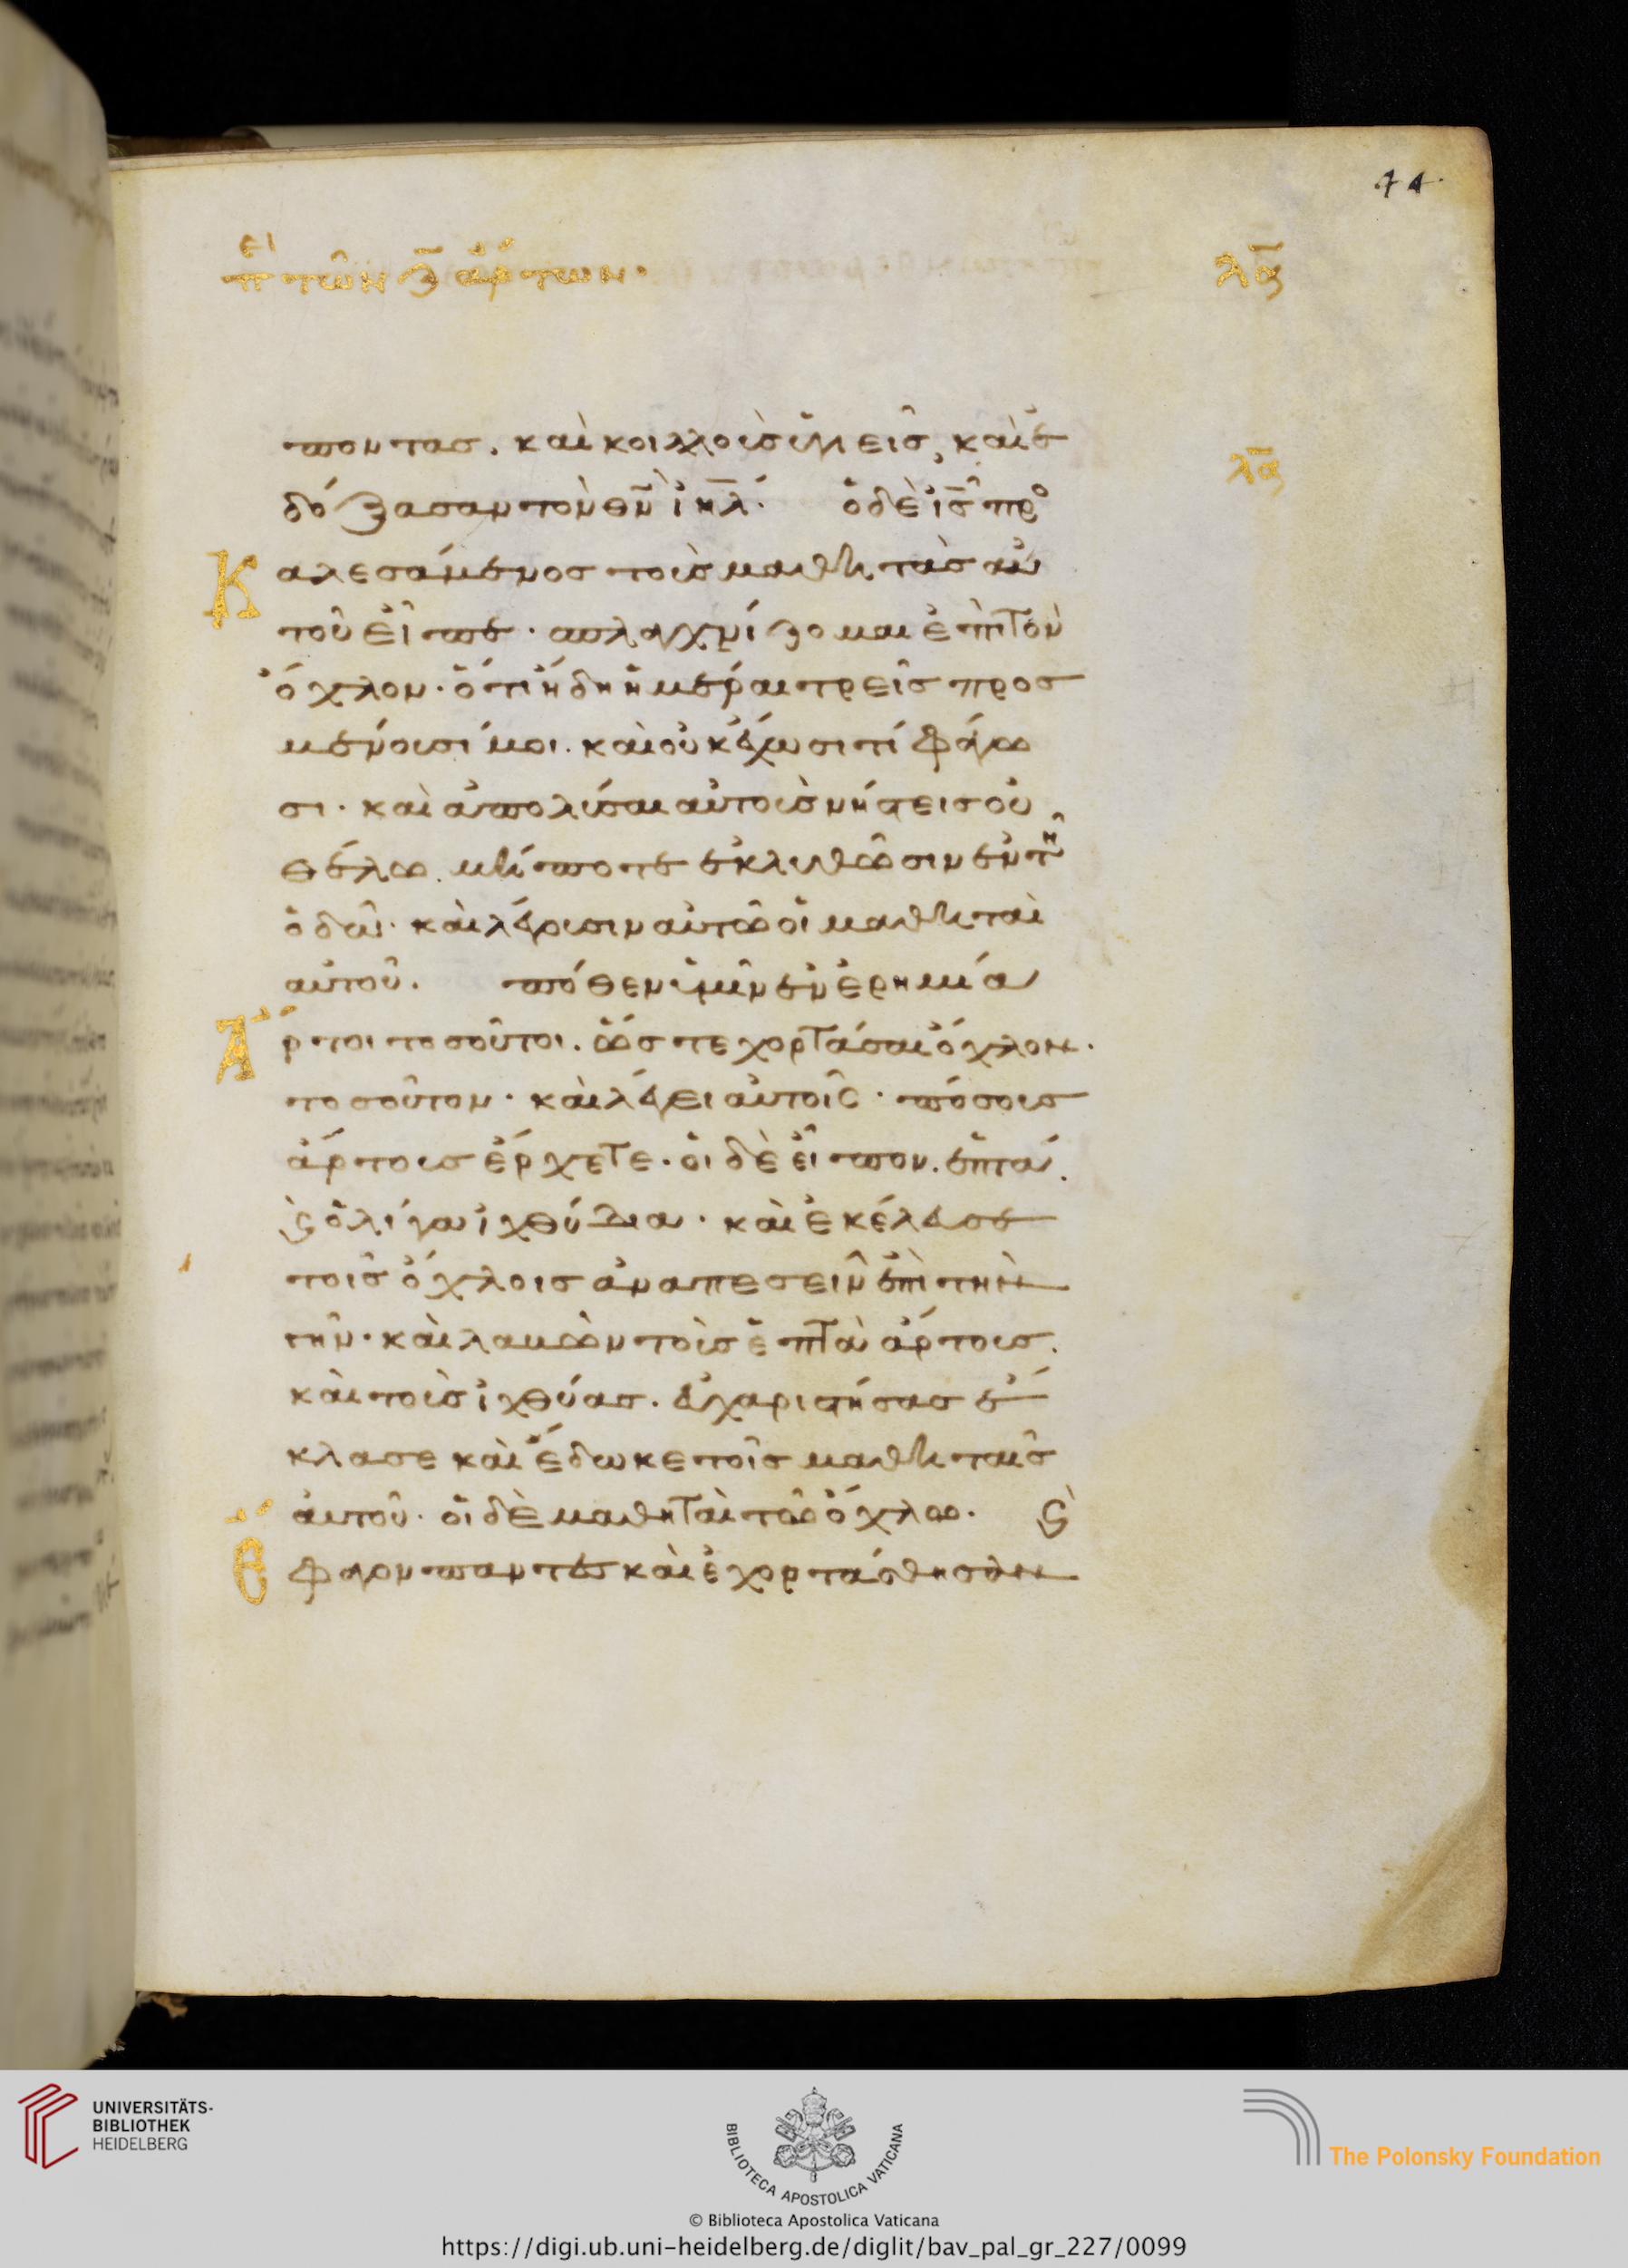 44.
περὶ τῶν ζ̄ ἄρτων.
λ̄γ
ποντας. καὶ κωλλοὺς ὑγιεῖς, καὶ ἐ
λ̄γ
δόξασαν τὸν θν̄ ἰηλ̄. ὁ δὲ ις̄ προ
Καλεσάμενος τοὺς μαθητὰς αὐ
τοῦ εἶπε. σπλαγχνίζομαι ἐπὶ τὸν
ὄχλον. ὅτι ἤδη ἡμέραι τρεῖς προς
μένουσί μοι. καὶ οὐκ ἔχωσι τί φάγω
σι. καὶ ἀπολύσαι αὐτοὺς νήστεις οὐ
θέλω. μήποτε ἐκλυθῶσιν ἐν τῆ
ὁδῶ. καὶ λέγουσιν αὐτῶ οἱ μαθηταὶ
αὐτοῦ. πόθεν ἡμῖν ἐν ἐρημία
Ἄρτοι τοσοῦτοι. ὥστε χορτάσαι ὄχλον.
τοσοῦτον. καὶ λέγει αὐτοῖς. πόσους
ἄρτους ἔρχετε. οἱ δὲ εἶπον. ἑπτά.
ϗ ὀλίγα ἰχθύδια. καὶ ἐκέλευσε
τοῖς ὄχλοις ἀναπεσεῖν ἐπὶ τὴν
γῆν. καὶ λαμβὼν τοὺς ἑπτὰ ἄρτους.
καὶ τοὺς ἰχθύας. εὐχαριστήσας ἔ
κλασε καὶ ἔδωκε τοῖς μαθηταῖς
αὐτοῦ. οἱ δὲ μαθηταὶ τῶ ὄχλω. ϗ
Ἔφαγον παντες καὶ ἐχορτάσθησαν
UNIVERSITÄTS-
BIBLIOTHEK
HEIDELBERG
BIBLIOTECA APOSTOLICA VATICANA
© Biblioteca Apostolica Vaticana
The Polonsky Foundation
https://digi.ub.uni-heidelberg.de/diglit/bav_pal_gr_227/0099